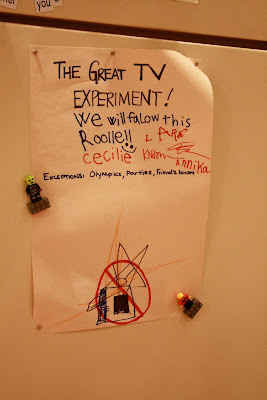 you
THE GREAT TV
EXPERIMENT!
We will falow this
Roolle!!
LARS
cecilie
annika
EXCEPTIONS: OLYMPICS, PARTIES, FRIEND'S HOUSES